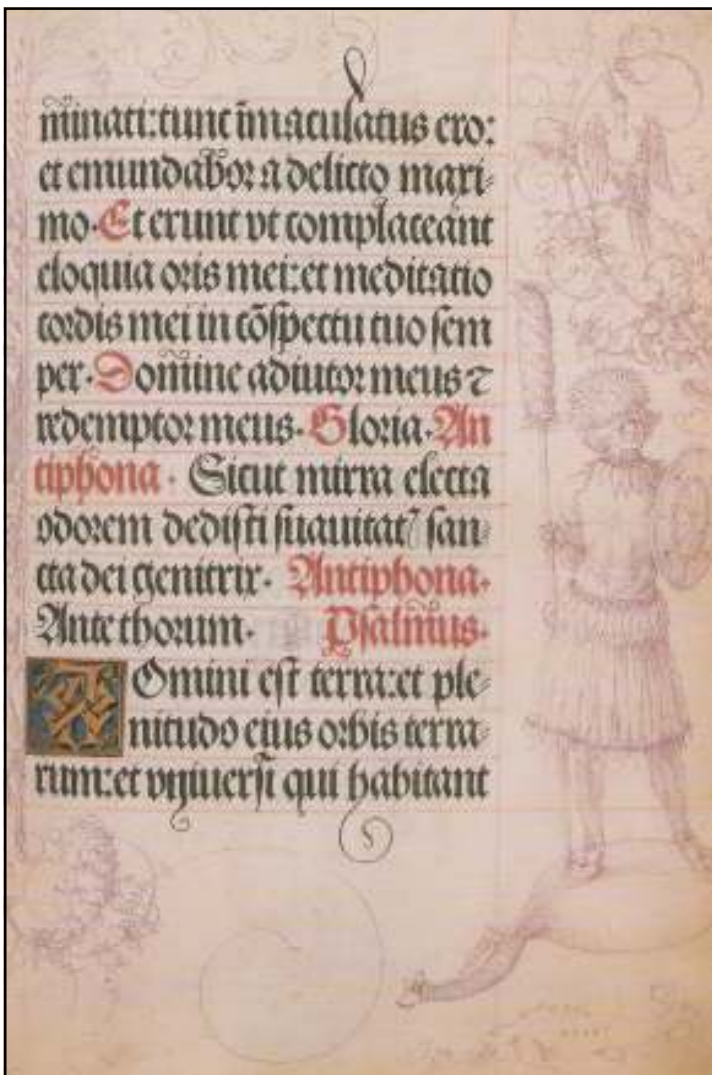 minati: tunc īmaculatus ero:
et emundabor a delicto maxi⸗
mo. Et erunt vt complaceant
eloquia oris mei: et meditatio
cordis mei in cōspectu tuo sem
per. Domine adiutor meus ⁊
redemptor meus. Gloria. An
tiphona. Sicut mirra electa
odorem dedisti suauitat᷒ san⸗
cta dei genitrix. Antiphona.
Ante thorum. Psalmus.
Domini est terra: et ple⸗
nitudo eius orbis terra⸗
rum: et vniuersi qui habitant